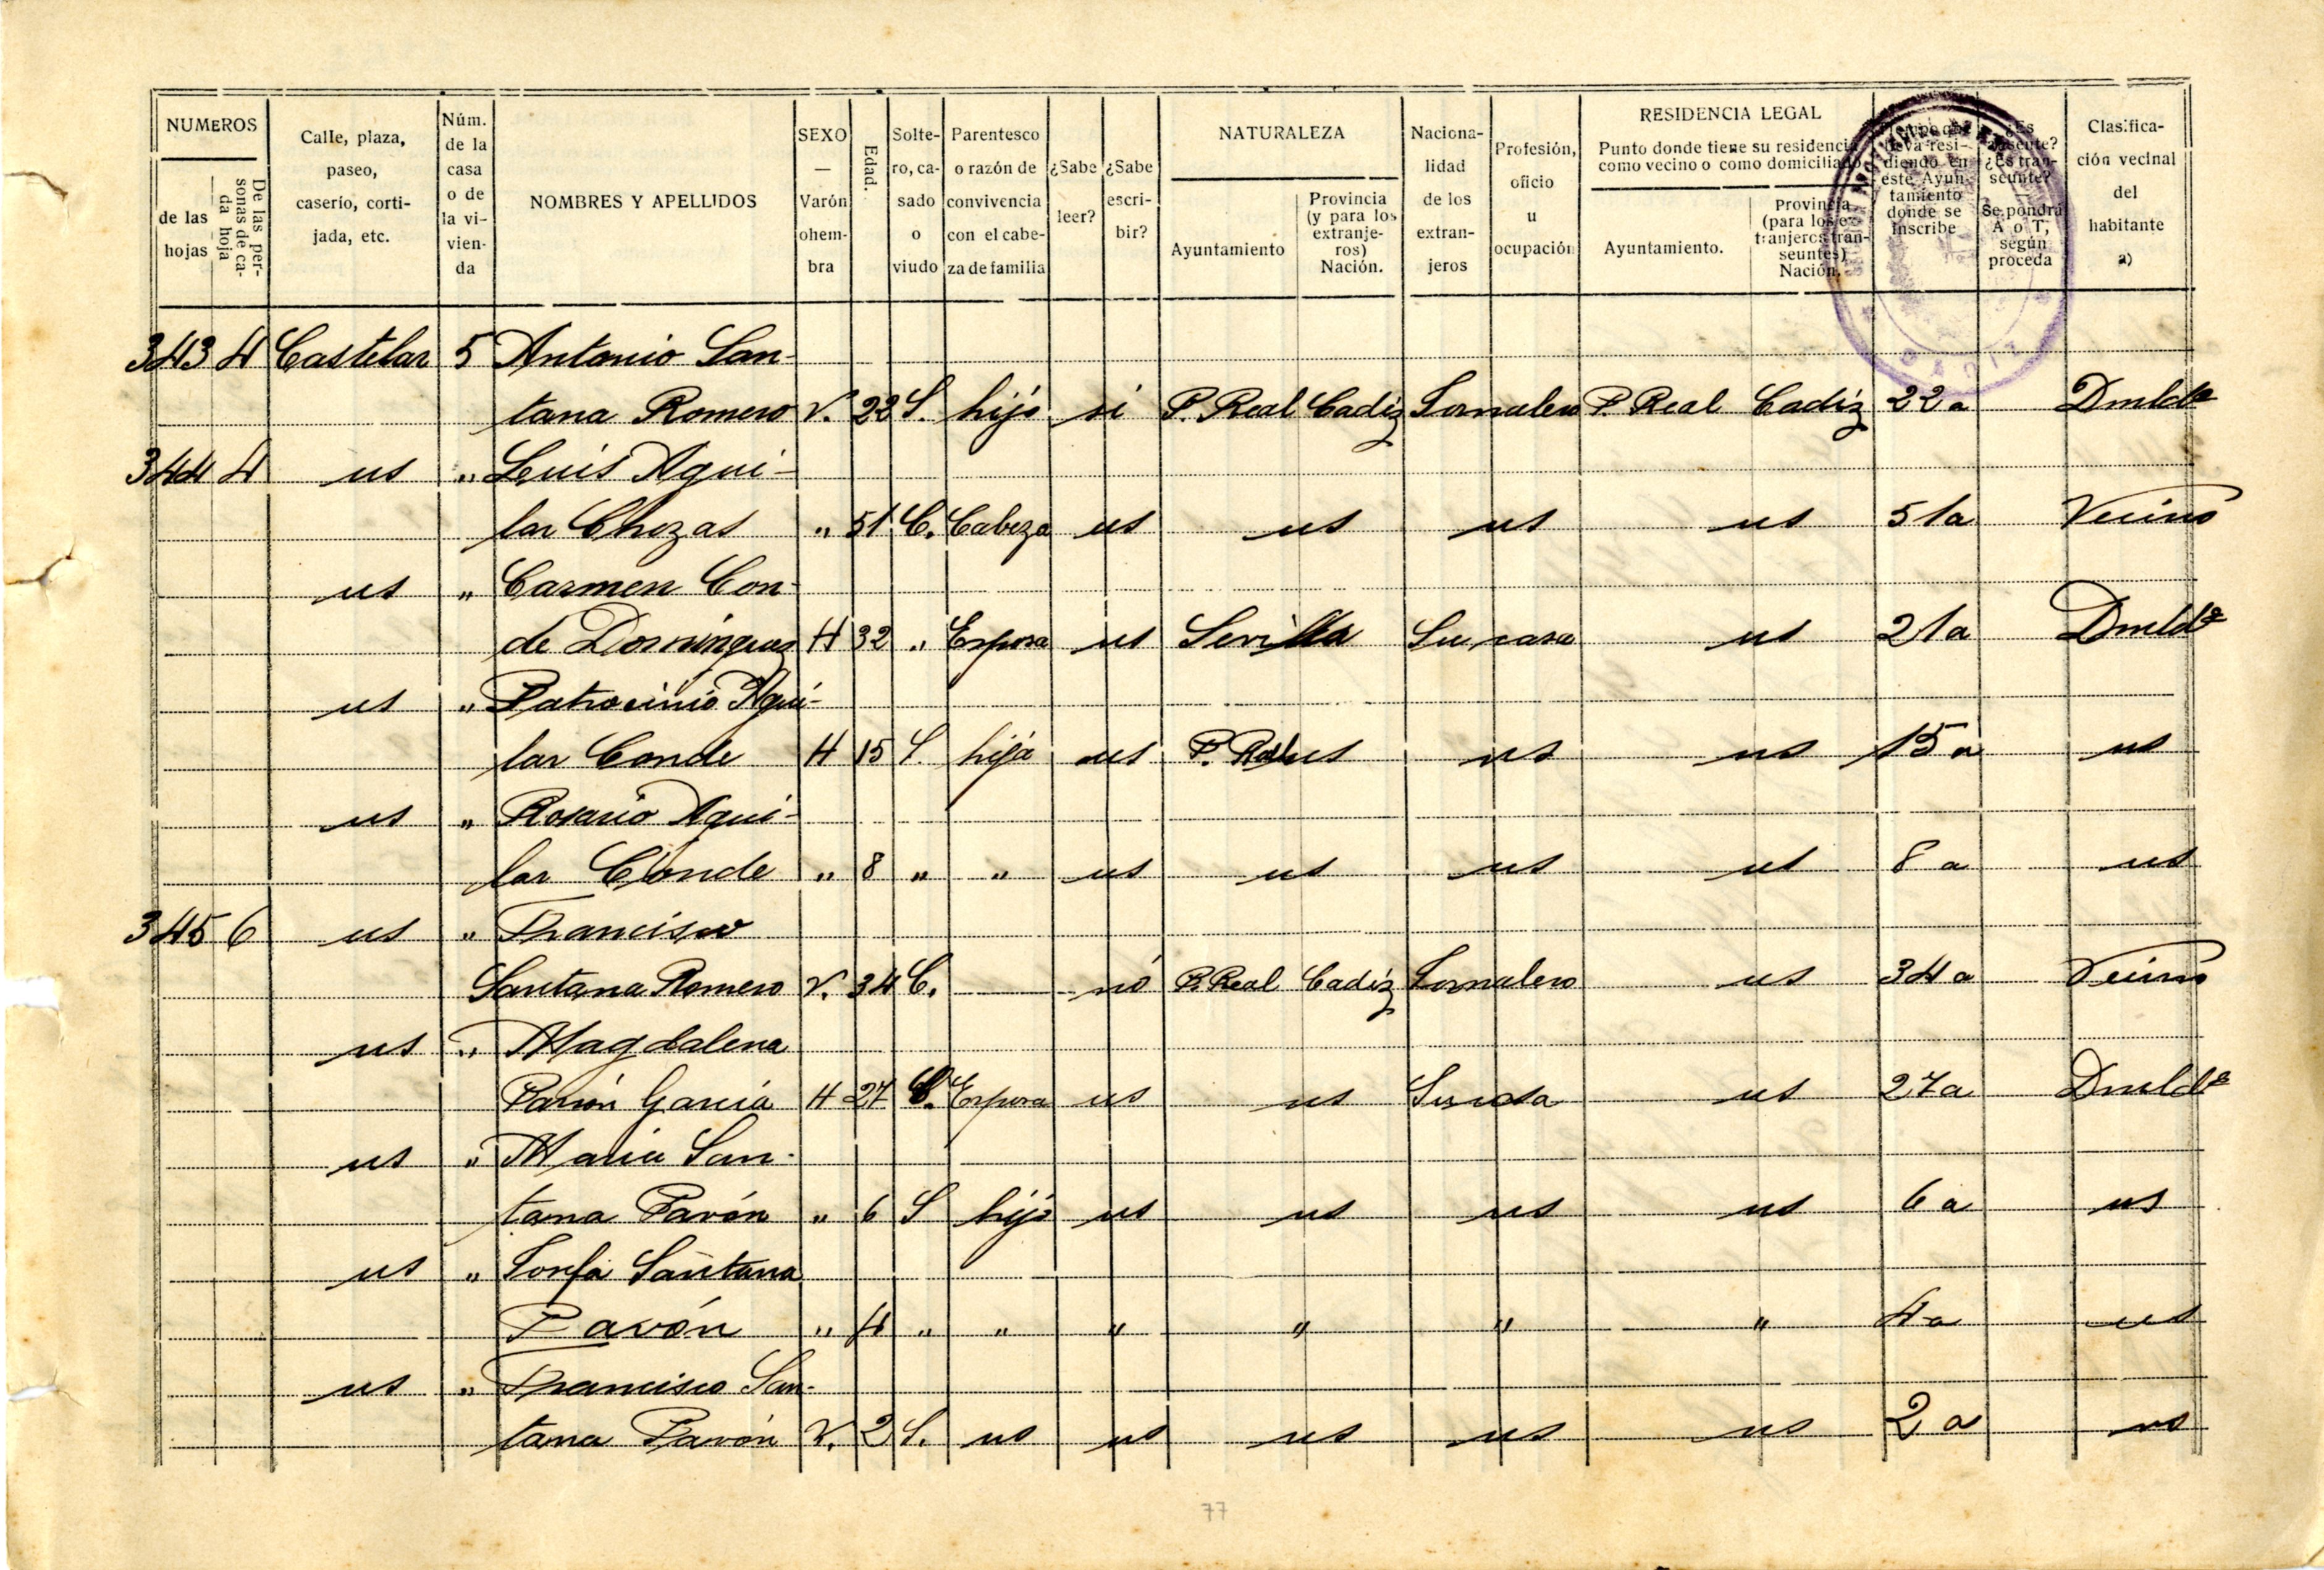 NUMEROS
de las hojas
De las personas de cada hoja
Calle, plaza, paseo, caserío, cortijada, etc.
Núm. de la casa o de la vivienda
NOMBRES Y APELLIDOS
SEXO — Varón o hembra
Edad.
Soltero, casado o viudo
Parentesco o razón de convivencia con el cabeza de familia
¿Sabe leer?
¿Sabe escribir?
NATURALEZA
Ayuntamiento
Provincia (y para los extranjeros) Nación.
Nacionalidad de los extranjeros
Profesión, oficio u ocupación
RESIDENCIA LEGAL
Punto donde tiene su residencia como vecino o como domiciliado
Ayuntamiento.
Provincia (para los extranjeros transeuntes) Nación.
Tiempo que lleva residiendo en este Ayuntamiento donde se inscribe
¿Es ausente? ¿Es transeunte? Se pondrá A o T, según proceda
Clasificación vecinal del habitante a)
CADIZ
343 4 Castelar 5 Antonio San-
tana Romero V. 22 S. hijo si P. Real Cadiz Jornalero P. Real Cadiz 22 a Dmldo
344 4 us " Luis Agui-
lar Chozas " 51 C. Cabeza us us us us 51 a Vecino
us " Carmen Con-
de Dominguez H 32 " Esposa us Sevilla Su casa us 21 a Dmlda
us " Patrocinio Agui-
lar Conde H 15 S. hija us P. Real us us us 15 a us
us " Rosario Agui-
lar Conde " 8 " " us us us us 8 a us
345 6 us " Francisco
Santana Romero V. 34 C. — nó P. Real Cadiz Jornalero us 34 a Vecino
us " Magdalena
Pavón García H 27 C. Esposa us us Su casa us 27 a Dmlda
us " Maria San-
tana Pavón " 6 S hija us us us us 6 a us
us " Josefa Santana
Pavón " 4 " " " " " " 4 a us
us " Francisco San-
tana Pavón V. 2 S. us us us us us 2 a us
77